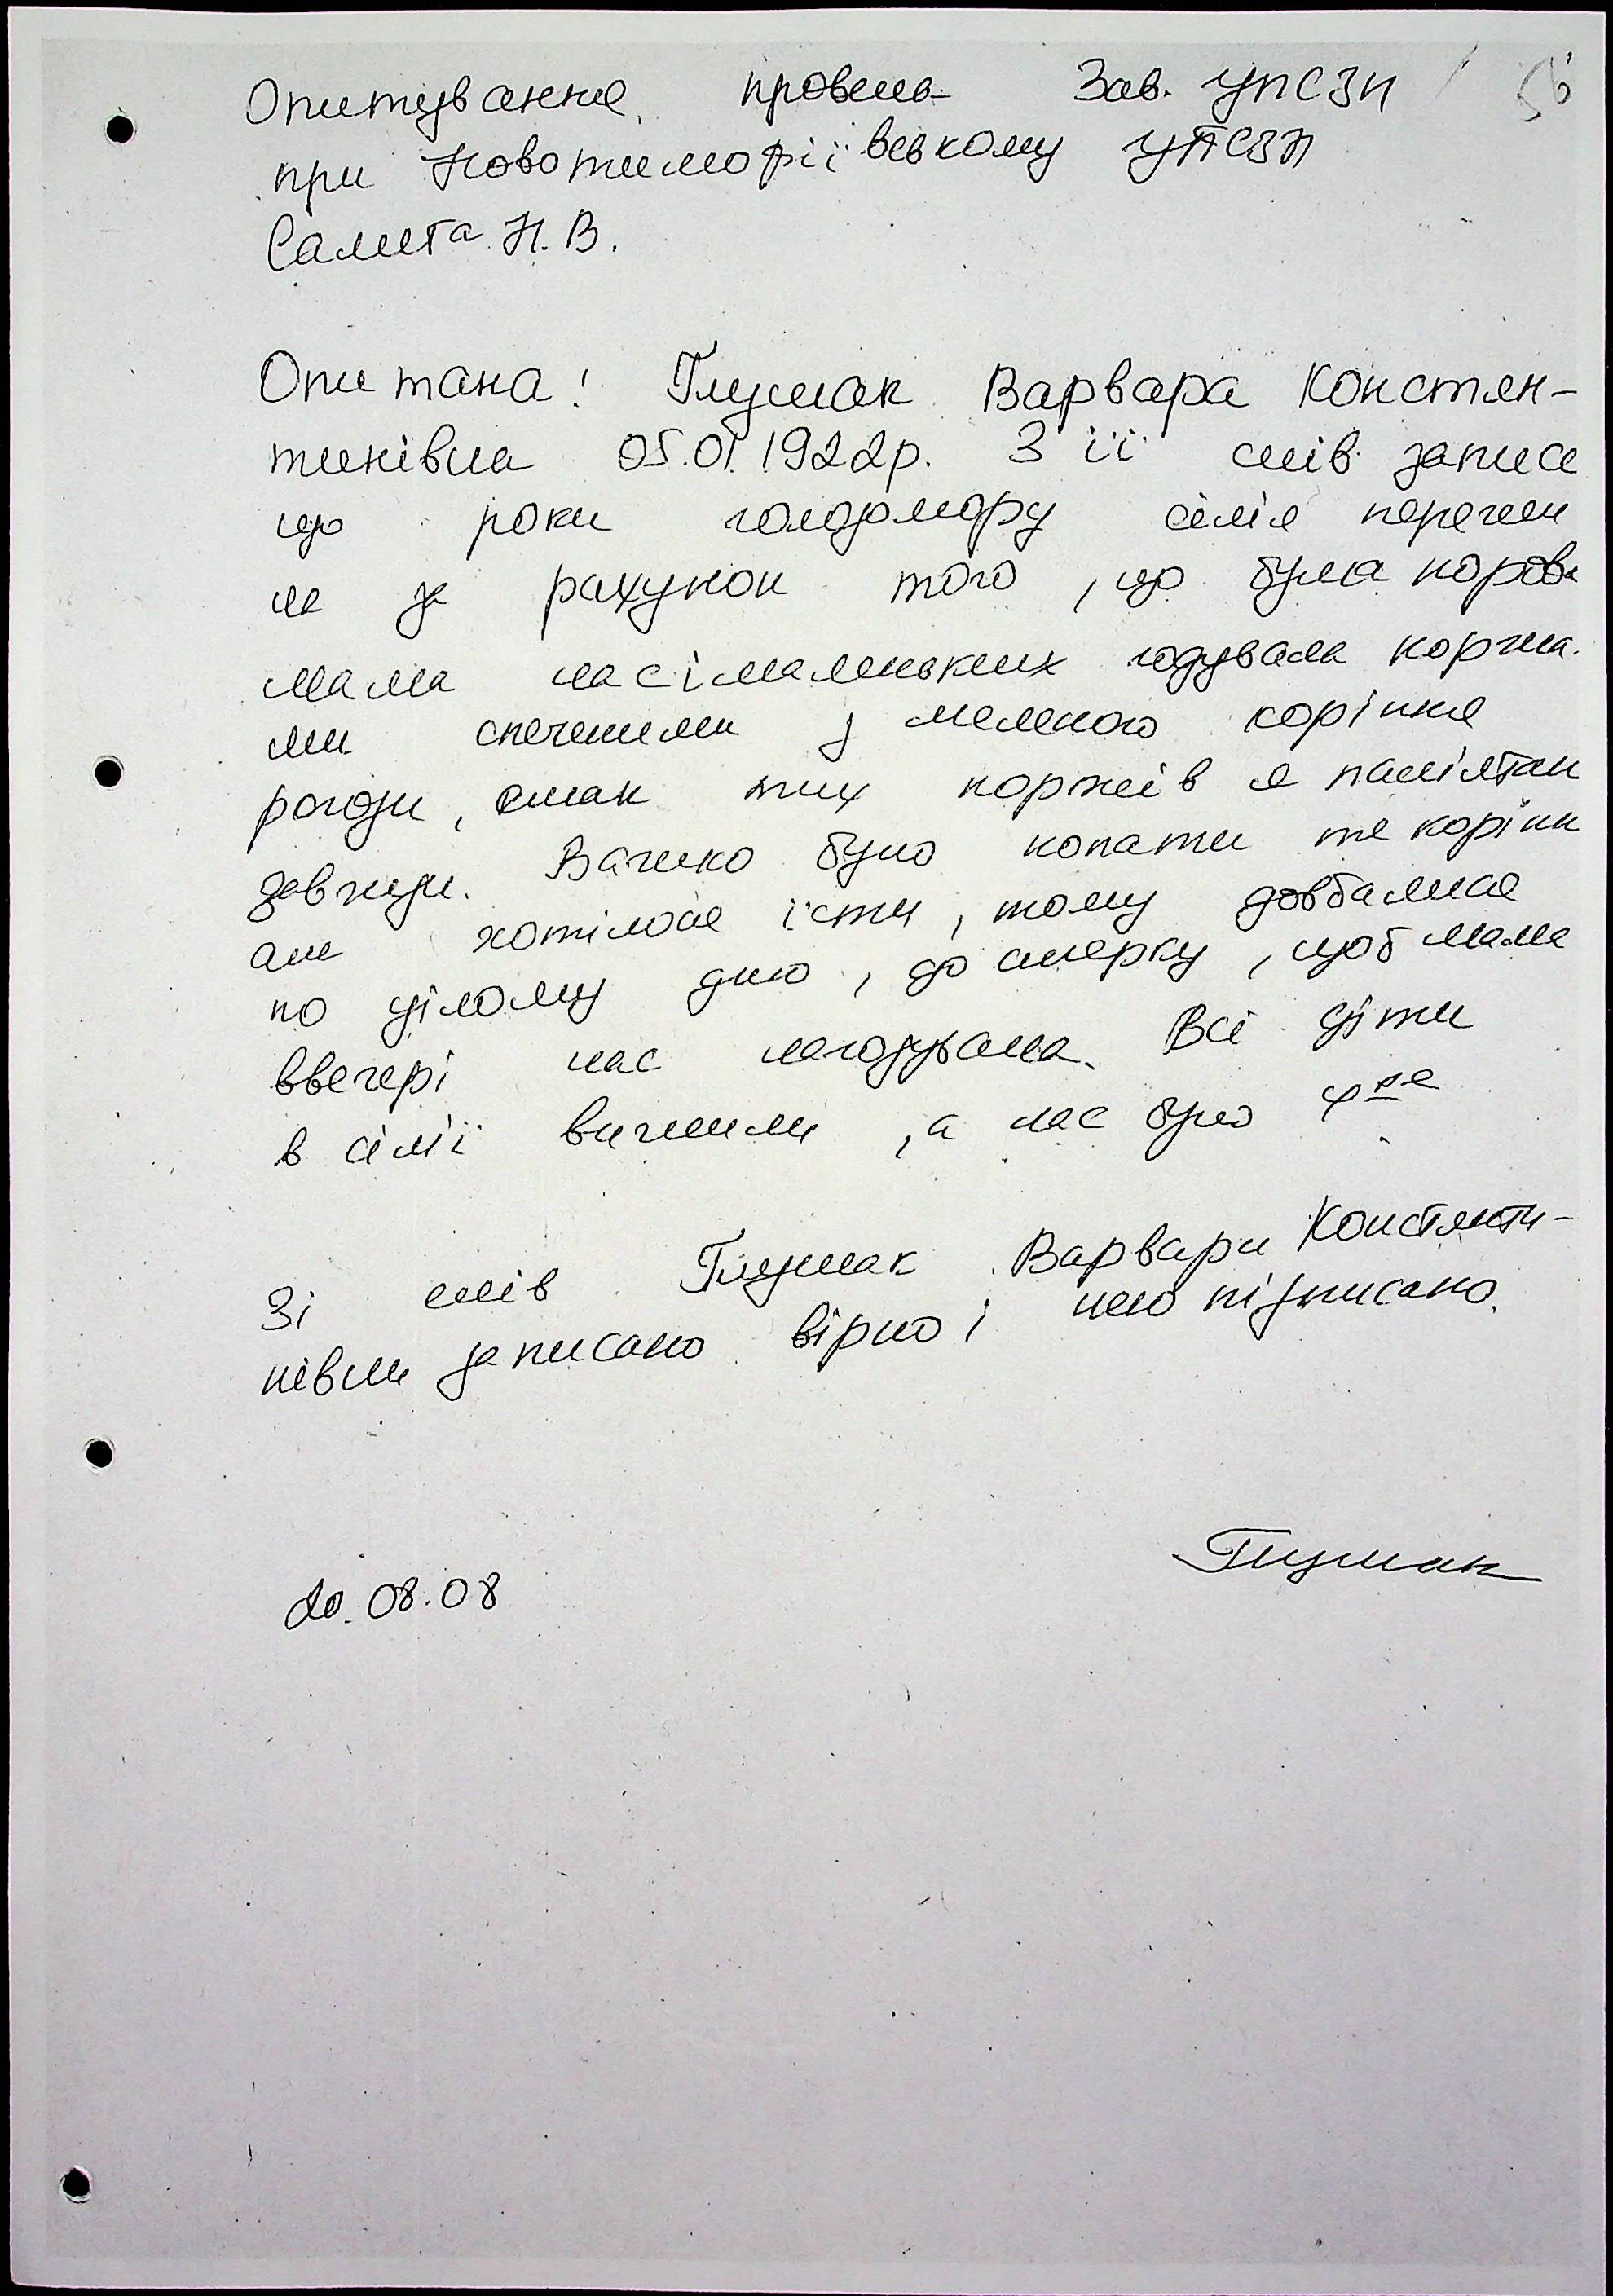 Опитування провела Зав. УПСЗН 56
при Новотимофіївському УПСЗН
Салита Н. В.
Опитана: Глушак Варвара Констян-
тинівна 05.01.1922р. З її слів записа
що роки голодомору сімія пережи
ла за рахунок того, що була корова
мама нас і маленьких годувала коржа-
ми спеченими з меленого коріння
рогози, смак тих коржів я памілтаю
завжди. Важко було копати те корінн
але хотілося їсти, тому довбалися
по цілому дню, до смерку, щоб мама
ввечері нас нагодувала. Всі діти
в сімії вижили, а нас було 4ро
Зі слів Глушак Варвари Констянти-
нівни записано вірно і нею підписано.
20.08.08 Глушак